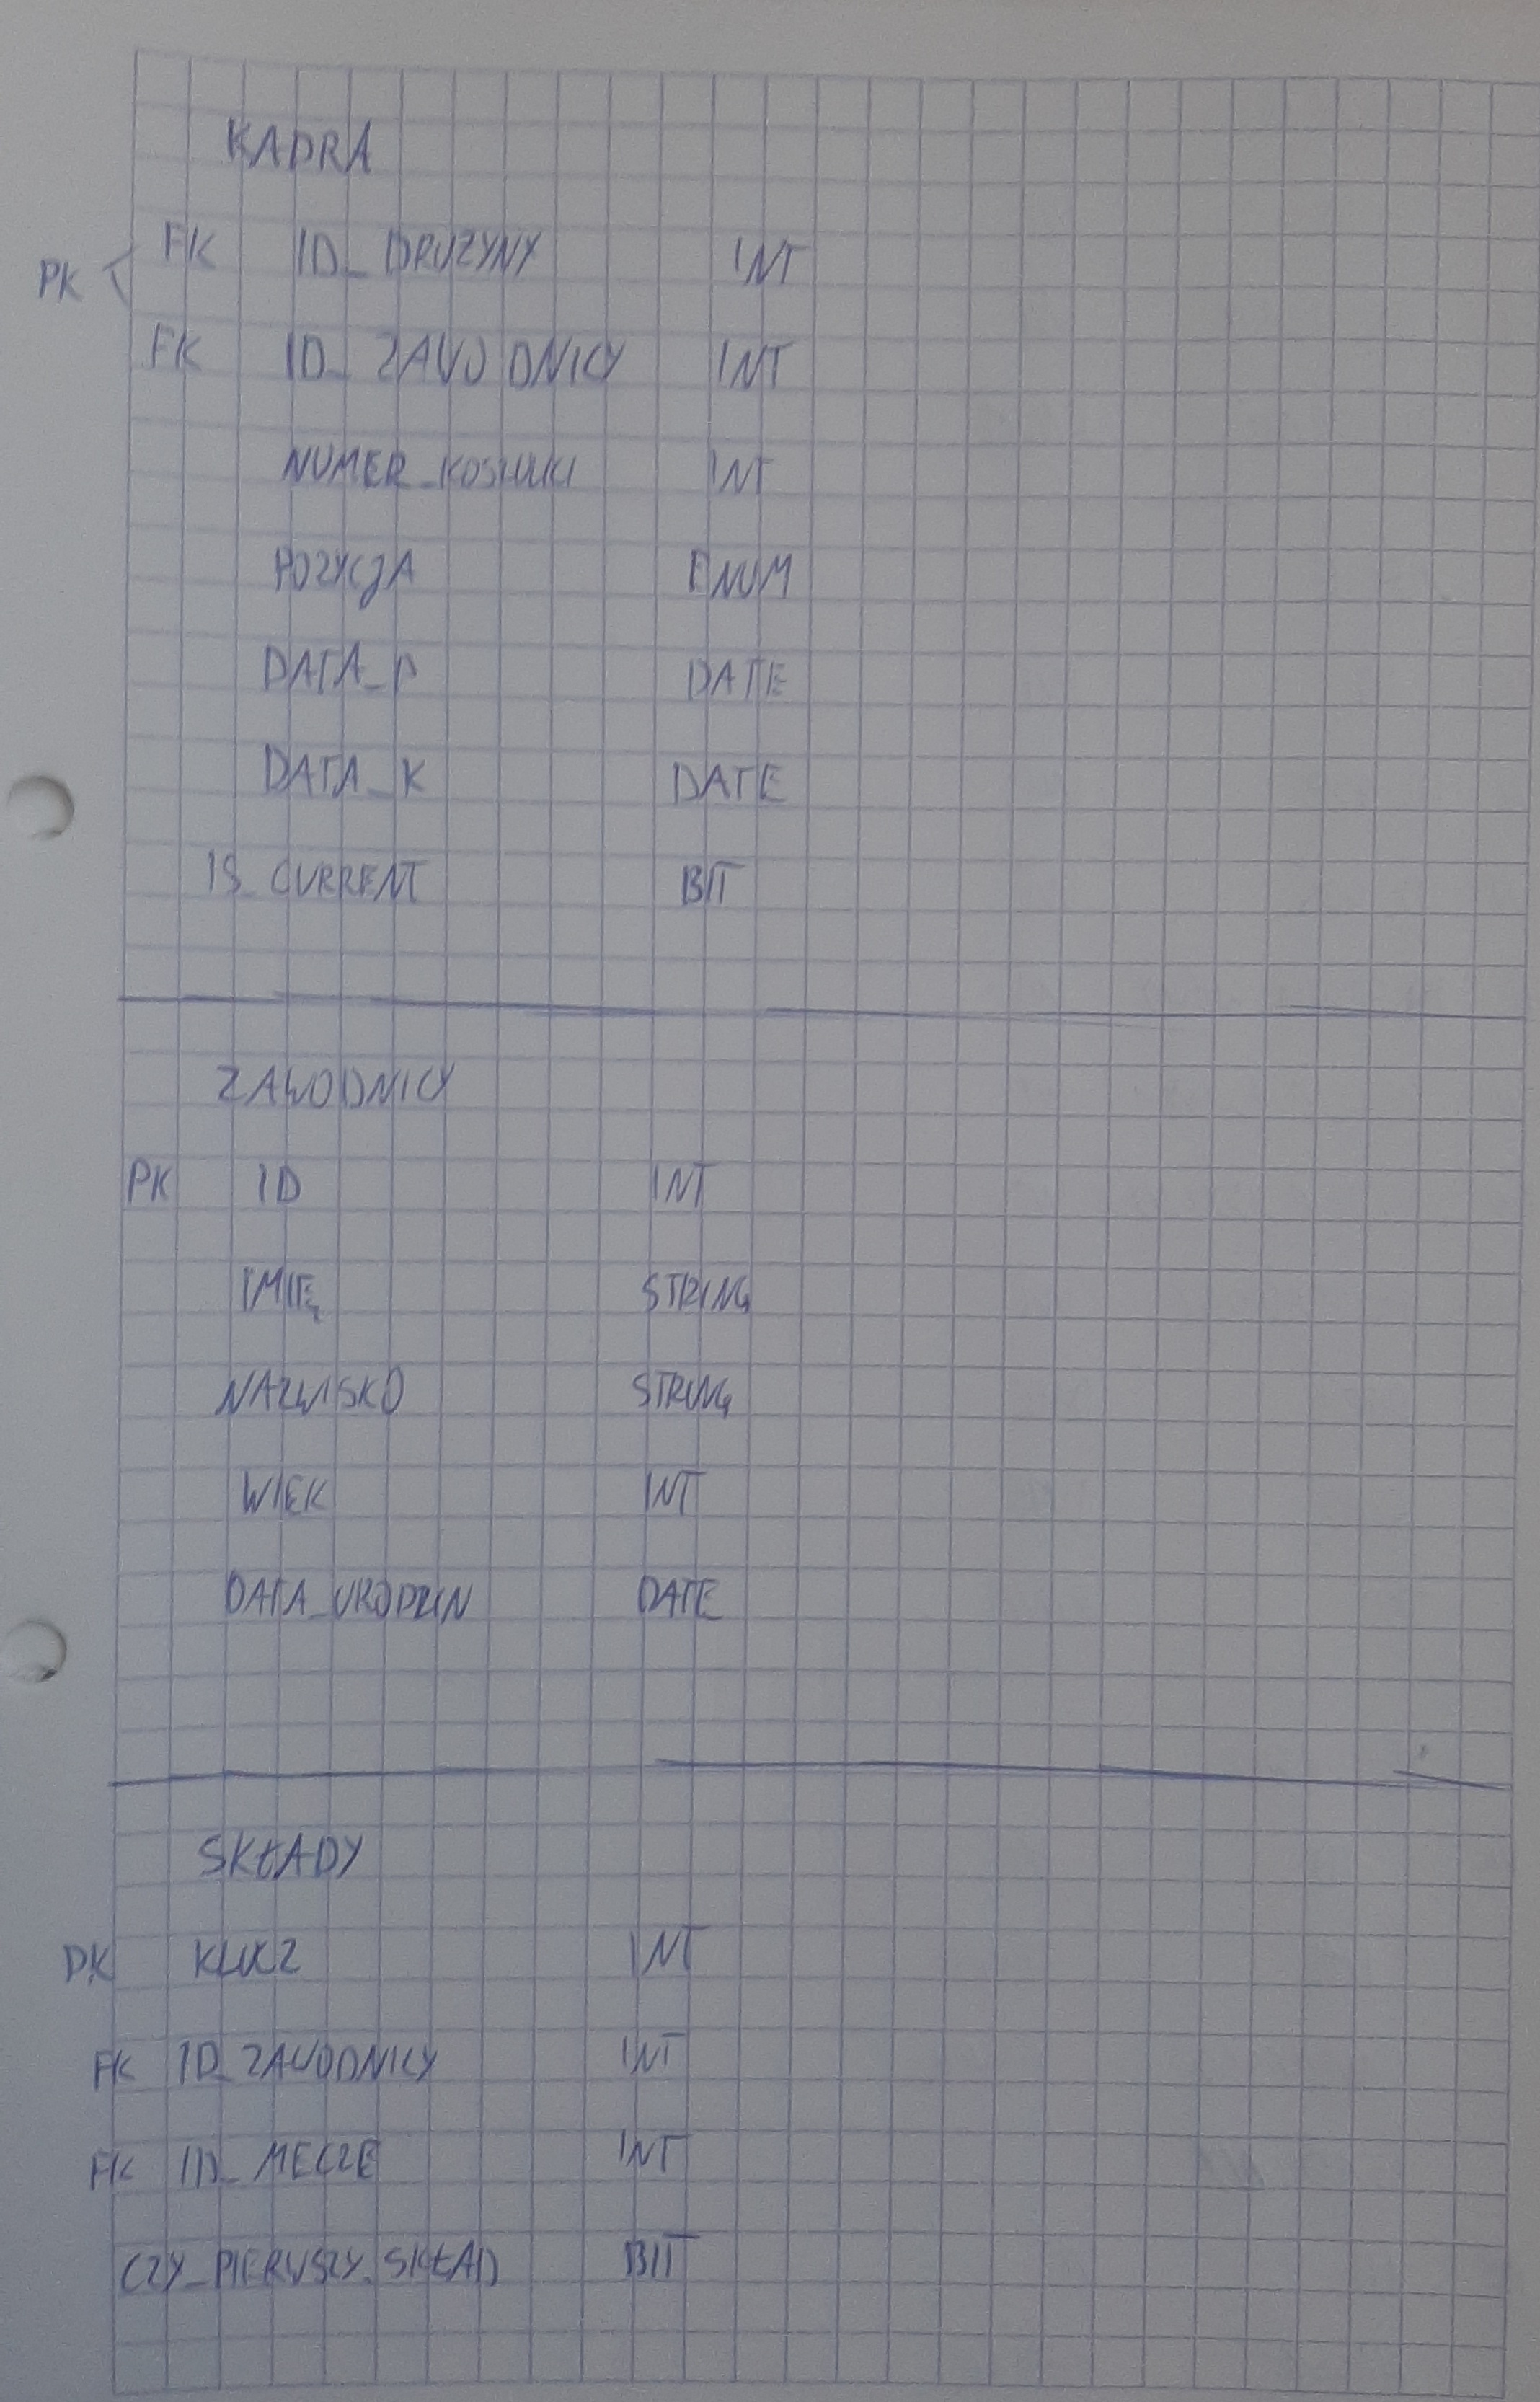 KADRA
FK ID_DRUZYNY INT
PK
FK ID_ZAWODNICY INT
NUMER_KOSZULKI INT
POZYCJA ENUM
DATA_P DATE
DATA_K DATE
IS_CURRENT BIT
ZAWODNICY
PK ID INT
IMIĘ STRING
NAZWISKO STRING
WIEK INT
DATA_URODZIN DATE
SKŁADY
PK KLUCZ INT
FK ID_ZAWODNICY INT
FK ID_MECZE INT
CZY_PIERWSZY_SKŁAD BIT